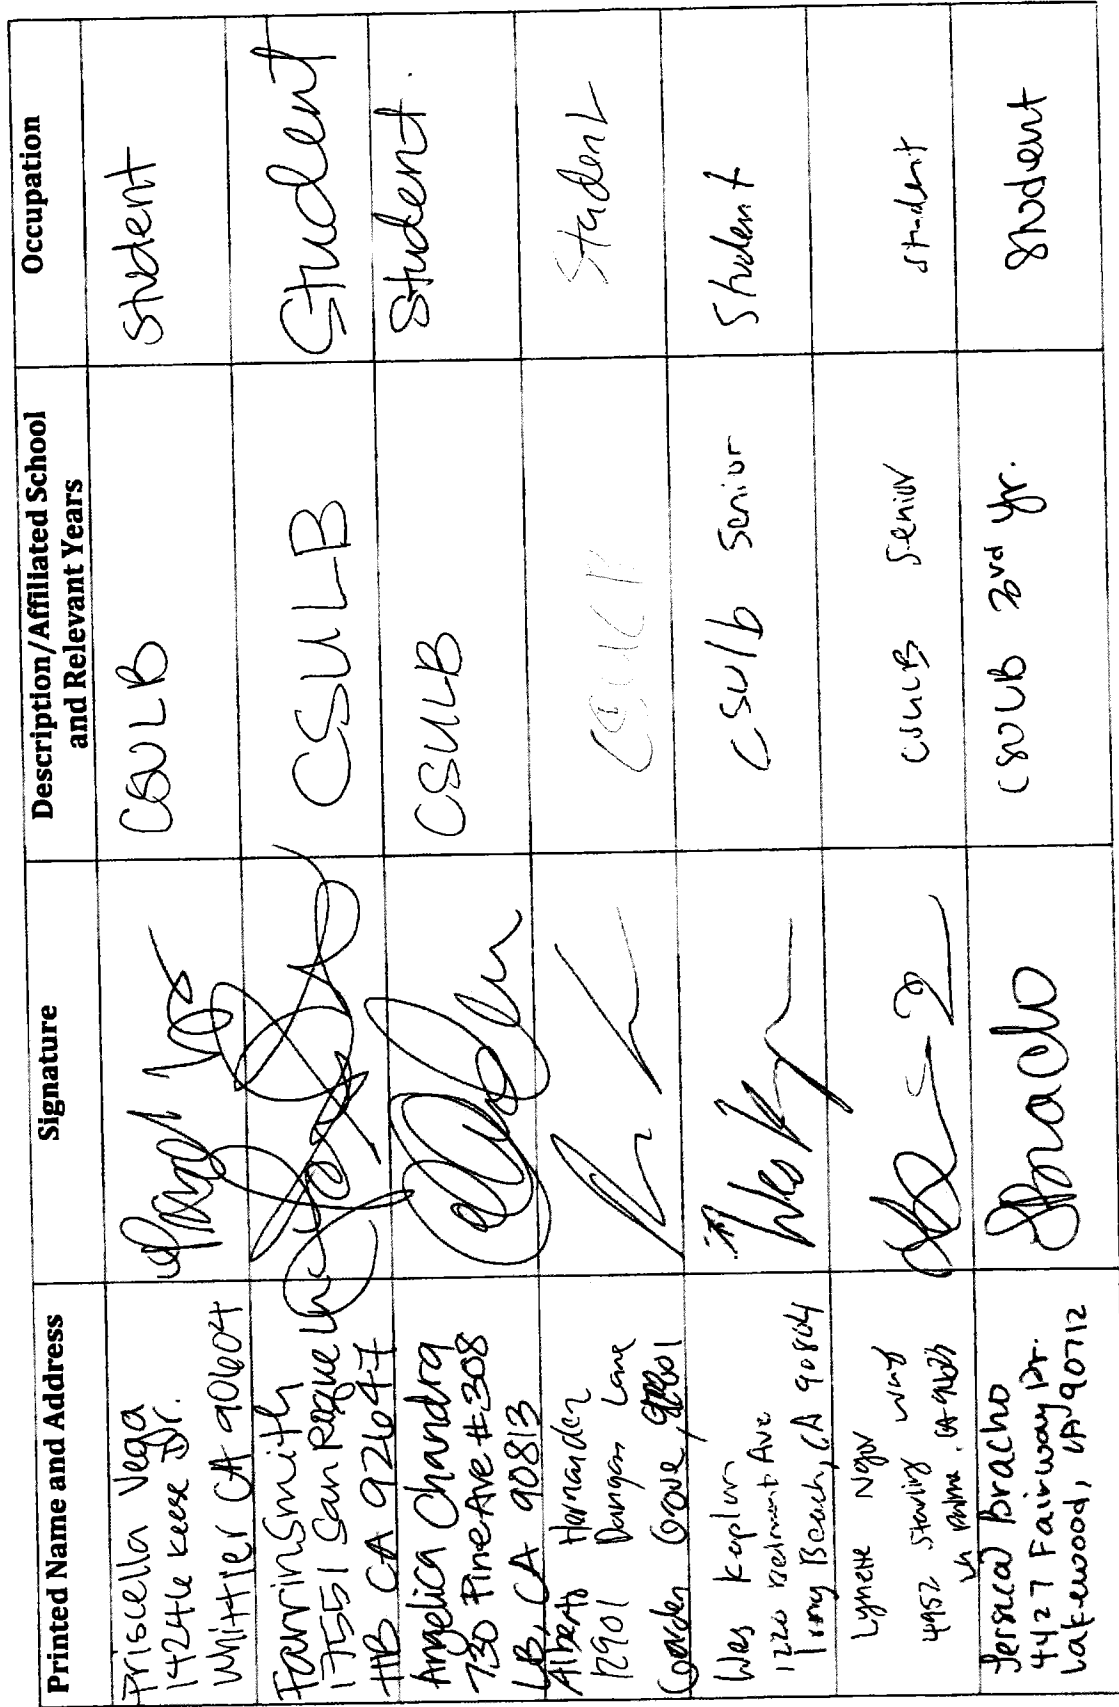 Printed Name and Address
Signature
Description/Affiliated School
and Relevant Years
Occupation
Priscella Vega
14246 Keese Dr.
Whittier CA 90604
CSULB
Student
Farrin Smith
17551 San Roque Ln
HB CA 92647
CSULB
Student
Angelica Chandra
730 Pine Ave #308
LB, CA 90813
CSULB
Student.
Alberto Hernandez
12901 Dungan Lane
Garden Grove,
CSULB
Student
Wes Kaplan
1220 Belmont Ave
Long Beach, CA 90804
Wes
CSUlb Senior
Student
Lynette
4952 Starling way
La Palma, CA
CSULB Senior
student
Jessica Bracho
4427 Fairway Dr.
Lakewood, CA 90712
JBracho
CSULB 3rd yr.
Student